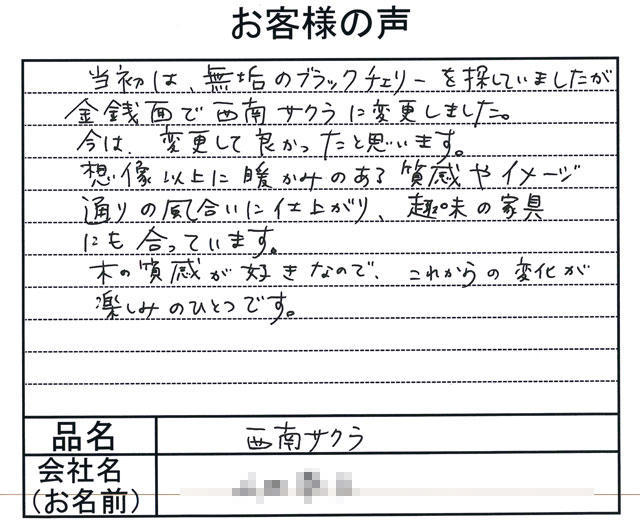 お客様の声
当初は、無垢のブラックチェリーを探していましたが
金銭面で西南サクラに変更しました。
今は、変更して良かったと思います。
想像以上に暖かみのある質感やイメージ
通りの風合いに仕上がり、趣味の家具
にも合っています。
木の質感が好きなので、これからの変化が
楽しみのひとつです。
品名 西南サクラ
会社名
(お名前)